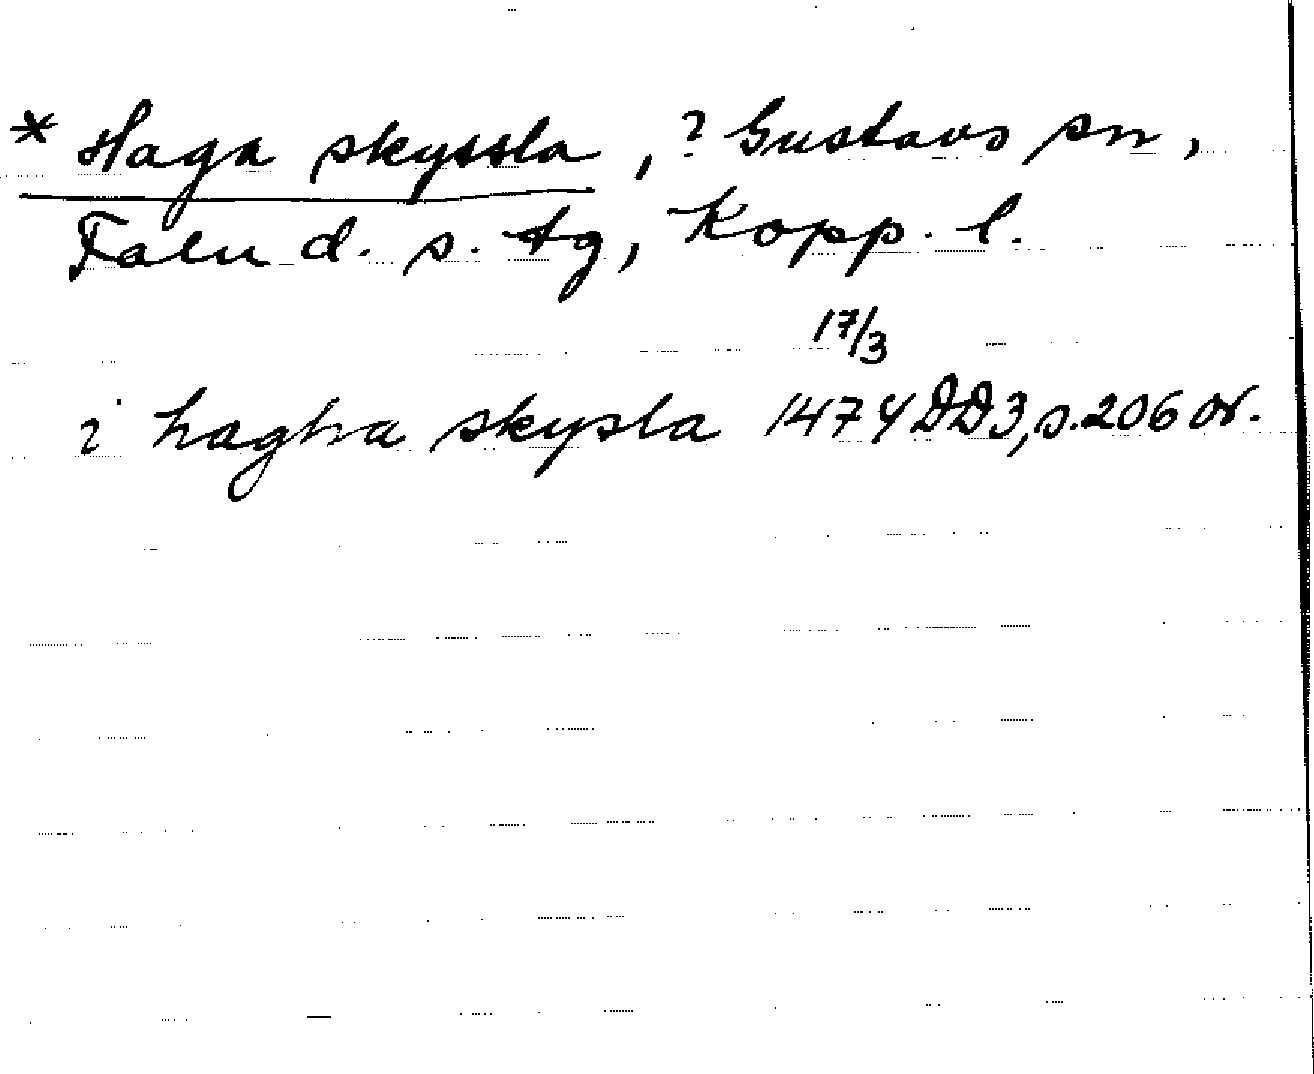 * Haga skyssla, ? Gustavs sn,
Falu d. s. tg, Kopp. l.
17/3
i hagha skysla 1474 DD3, s. 206 or.